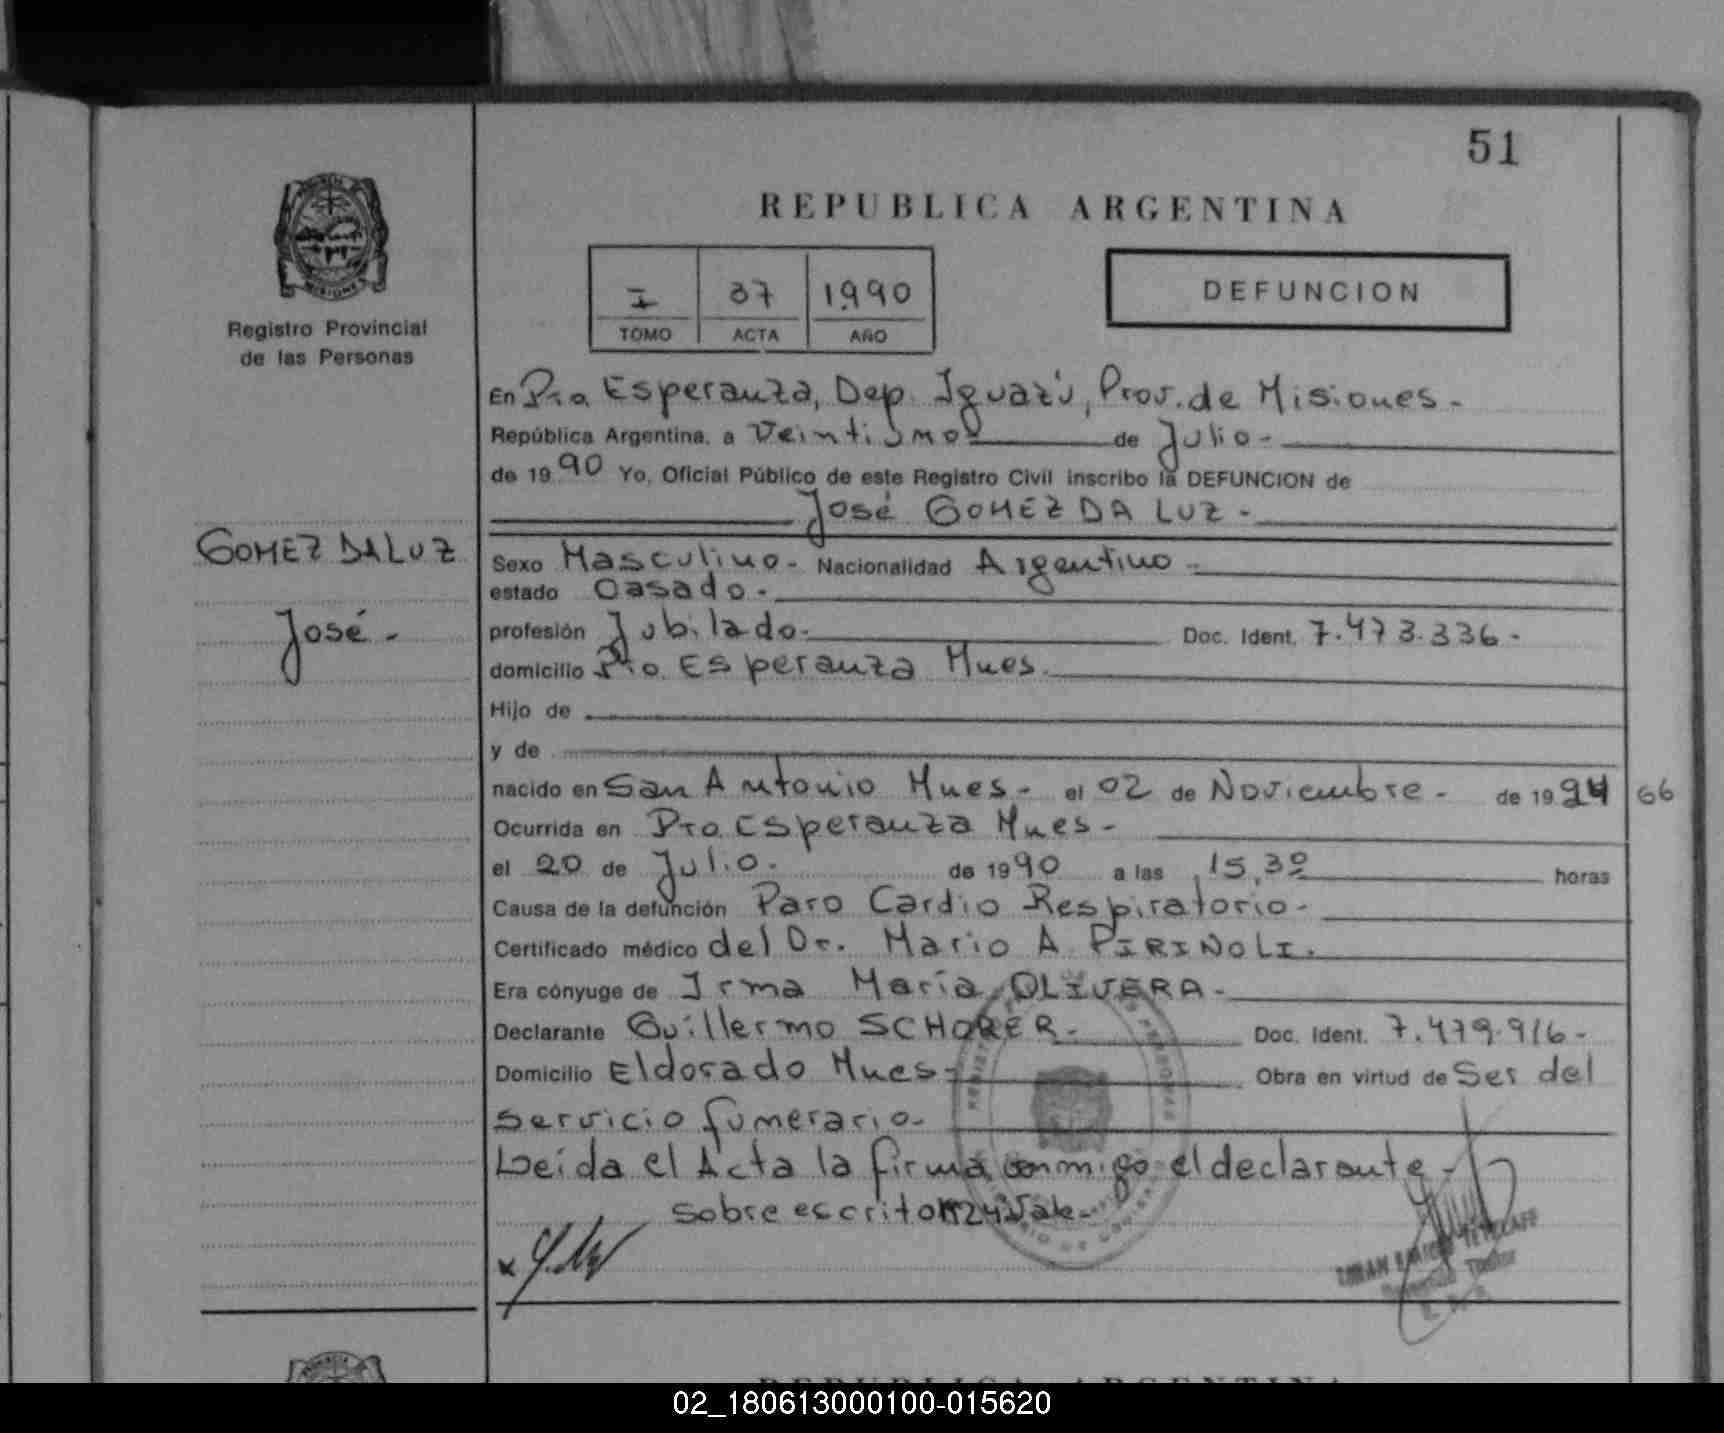 51
REPUBLICA ARGENTINA
I 37 1990
TOMO ACTA AÑO
DEFUNCION
Registro Provincial
de las Personas
En Pto Esperanza, Dep. Iguazú, Prov. de Misiones.
República Argentina, a Veintiuno de Julio.
de 1990 Yo, Oficial Público de este Registro Civil inscribo la DEFUNCION de
José GOMEZ DA LUZ.
GOMEZ DA LUZ
José.
Sexo Masculino. Nacionalidad Argentino
estado Casado.
profesión Jubilado. Doc. Ident. 7.473.336.
domicilio Pto Esperanza Mnes.
Hijo de
y de
nacido en San Antonio Mnes. el 02 de Noviembre. de 1924 66
Ocurrida en Pto. Esperanza Mnes.
el 20 de Julio. de 1990 a las 15,30 horas
Causa de la defunción Paro Cardio Respiratorio.
Certificado médico del Dr. Mario A PIRINOLI.
Era cónyuge de Irma María OLIVERA.
Declarante Guillermo SCHORER. Doc. Ident. 7.479.916.
Domicilio Eldorado Mnes. Obra en virtud de Ser del
servicio funerario.
Leída el Acta la firma conmigo el declarante.
sobre escrito 1924 Vale.
REPUBLICA ARGENTINA
02_180613000100-015620